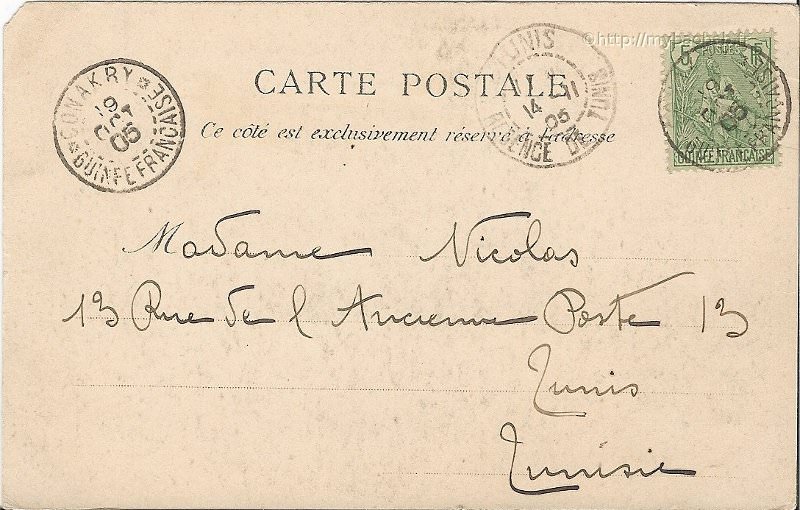 ©http://my
CONAKRY
19
OCT
05
GUINEE FRANÇAISE
TUNIS
14 - 11
05
REGENCE DE TUNIS
5 POSTES 5
GUINÉE FRANÇAISE
CARTE POSTALE
Ce côté est exclusivement réservé à l'adresse
Madame Nicolas
13 Rue de l'Ancienne Poste 13
Tunis
Tunisie